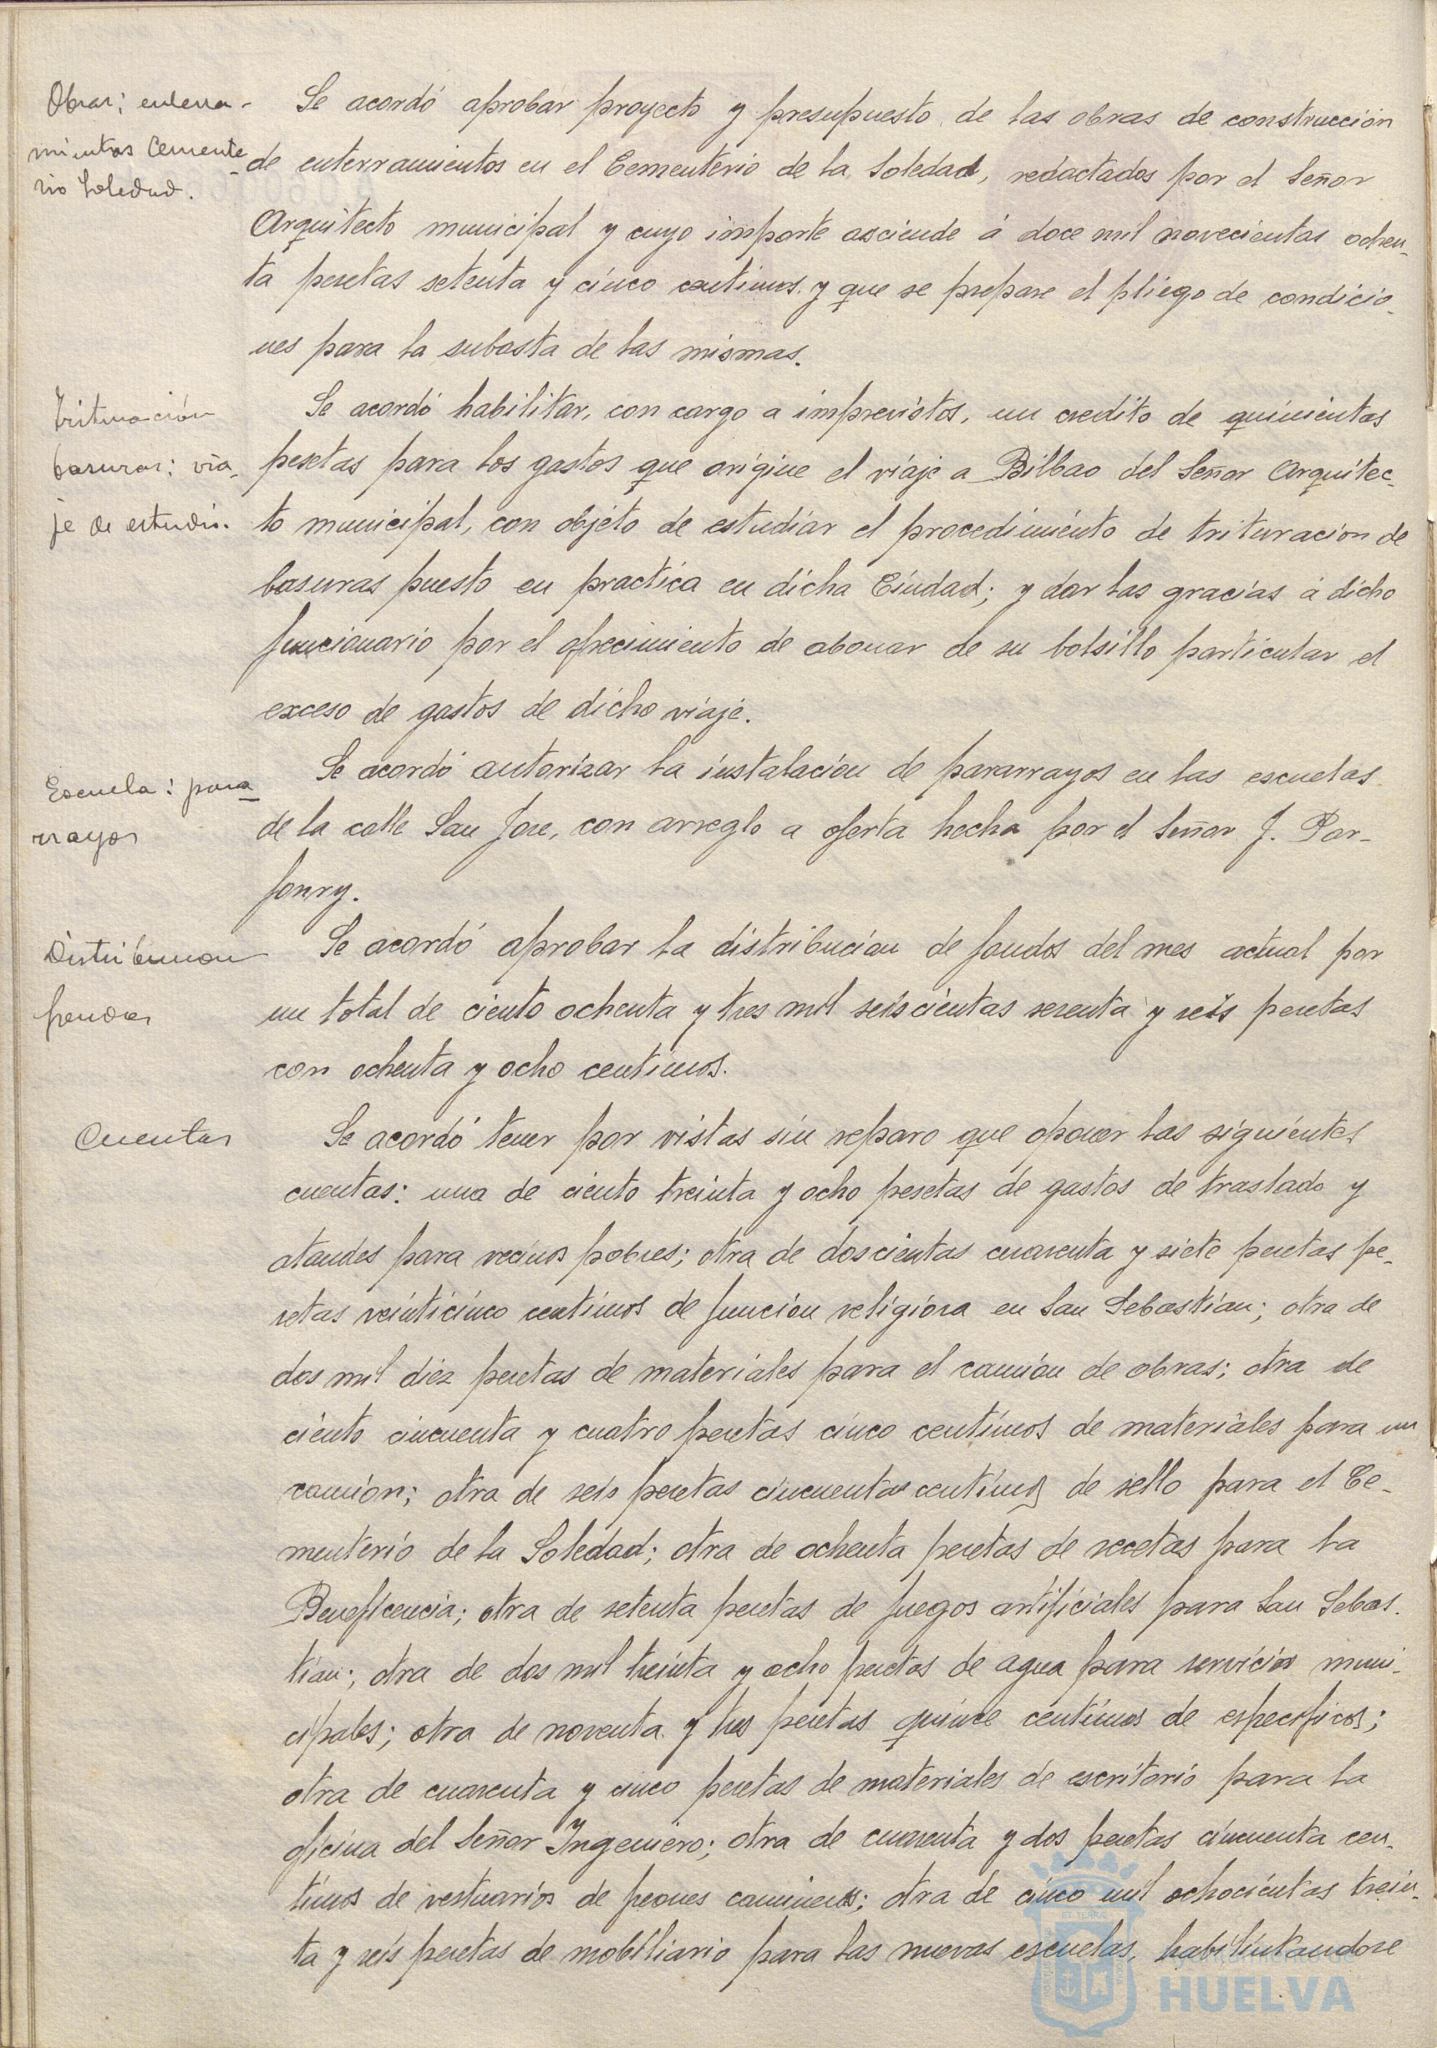 Obras; enterra-
mientos Cemente-
rio Soledad.
Se acordó aprobar proyecto y presupuesto de las obras de construccion
de enterramientos en el Cementerio de la Soledad, redactados por el Señor
Arquitecto municipal y cuyo importe asciende á doce mil novecientas ochen-
ta pesetas setenta y cinco centimos y que se prepare el pliego de condicio-
nes para la subasta de las mismas.
Trituración
basuras; via-
je de estudio.
Se acordó habilitar, con cargo a imprevistos, un credito de quinientas
pesetas para los gastos que origine el viaje a Bilbao del Señor Arquitec-
to municipal, con objeto de estudiar el procedimiento de trituracion de
basuras puesto en practica en dicha Ciudad; y dar las gracias á dicho
funcionario por el ofrecimiento de abonar de su bolsillo particular el
exceso de gastos de dicho viaje.
Escuela: para-
rrayos
Se acordó autorizar la instalacion de pararrayos en las escuelas
de la calle San Jose, con arreglo a oferta hecha por el Señor J. Par-
fonry.
Distribucion
fondos
Se acordó aprobar la distribucion de fondos del mes actual por
un total de ciento ochenta y tres mil seiscientas sesenta y seis pesetas
con ochenta y ocho centimos.
Cuentas
Se acordó tener por vistas sin reparo que oponer las siguientes
cuentas: una de ciento treinta y ocho pesetas de gastos de traslado y
ataudes para vecinos pobres; otra de doscientas cuarenta y siete pesetas pe-
setas veinticinco centimos de funcion religiosa en San Sebastian; otra de
dos mil diez pesetas de materiales para el camion de obras; otra de
ciento cincuenta y cuatro pesetas cinco centimos de materiales para un
camion; otra de seis pesetas cincuenta centimos de sello para el Ce-
menterio de la Soledad; otra de ochenta pesetas de recetas para la
Beneficencia; otra de setenta pesetas de fuegos artificiales para San Sebas-
tian; otra de dos mil treinta y ocho pesetas de agua para servicios muni-
cipales; otra de noventa y tres pesetas quince centimos de especificos;
otra de cuarenta y cinco pesetas de materiales de escritorio para la
oficina del Señor Ingeniero; otra de cuarenta y dos pesetas cincuenta cen-
timos de vestuarios de peones camineros; otra de cinco mil ochocientas trein-
ta y seis pesetas de mobiliario para las nuevas escuelas, habilintandose
Ayuntamiento de
HUELVA